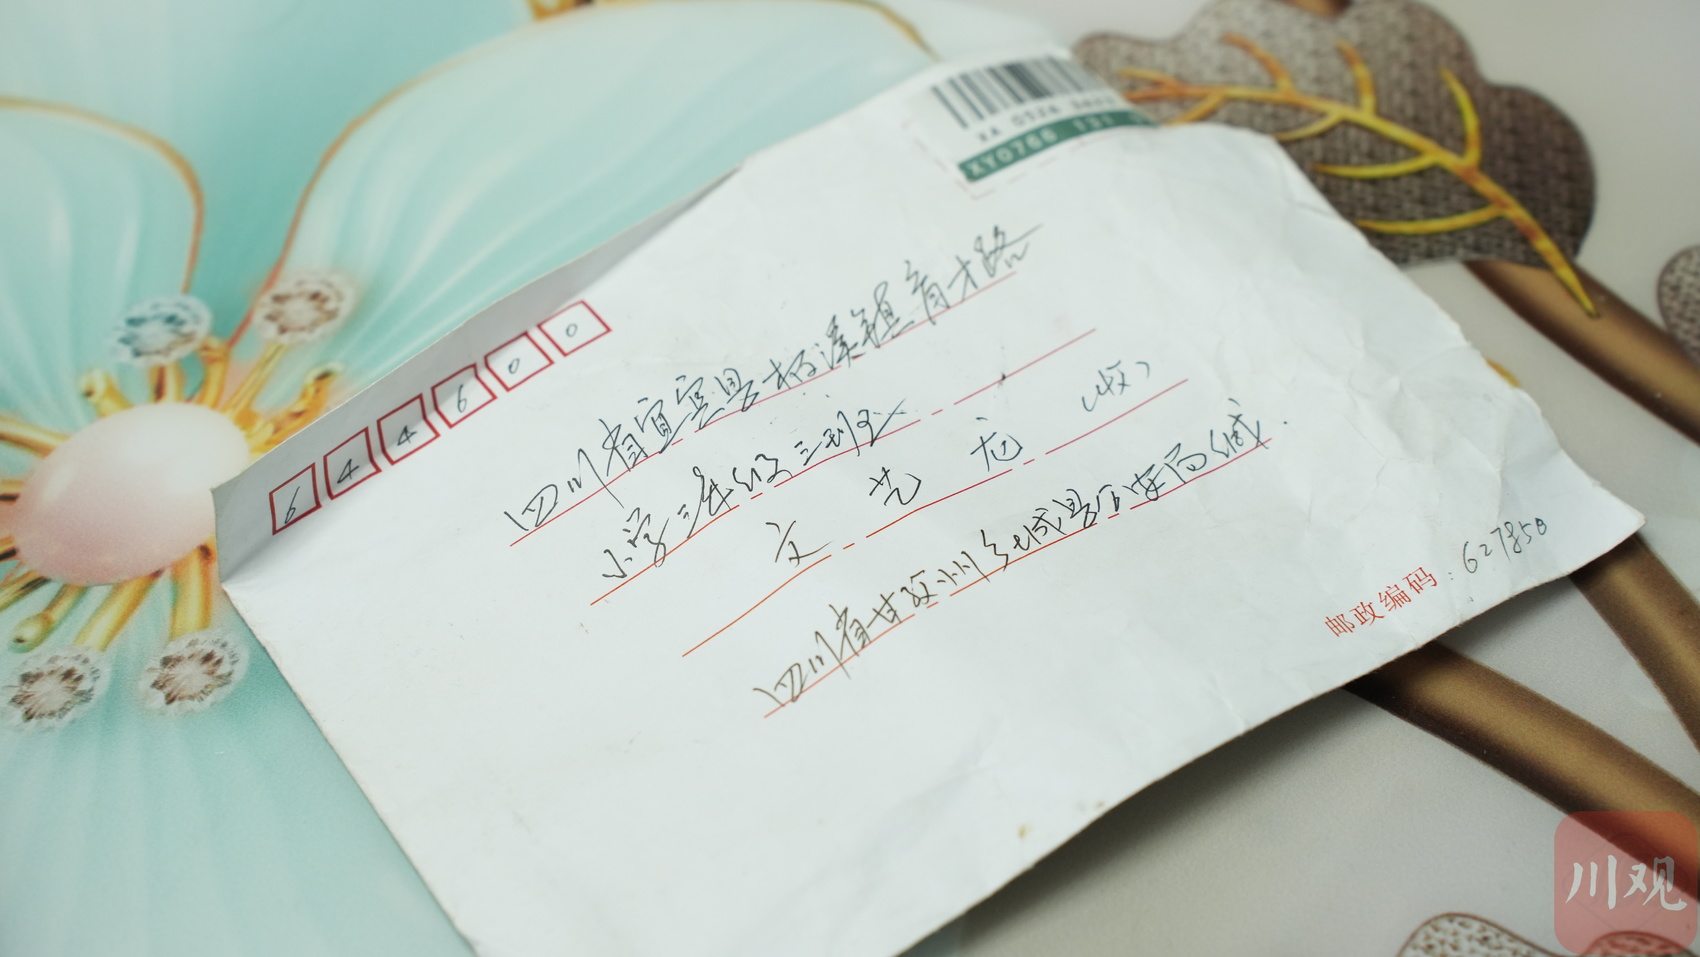 XY0766 131
644600
四川省宜宾县柏溪镇育才路
小学三年级三班
文艺龙(收)
四川省甘孜州乡城县公安局缄
邮政编码:627850
川观